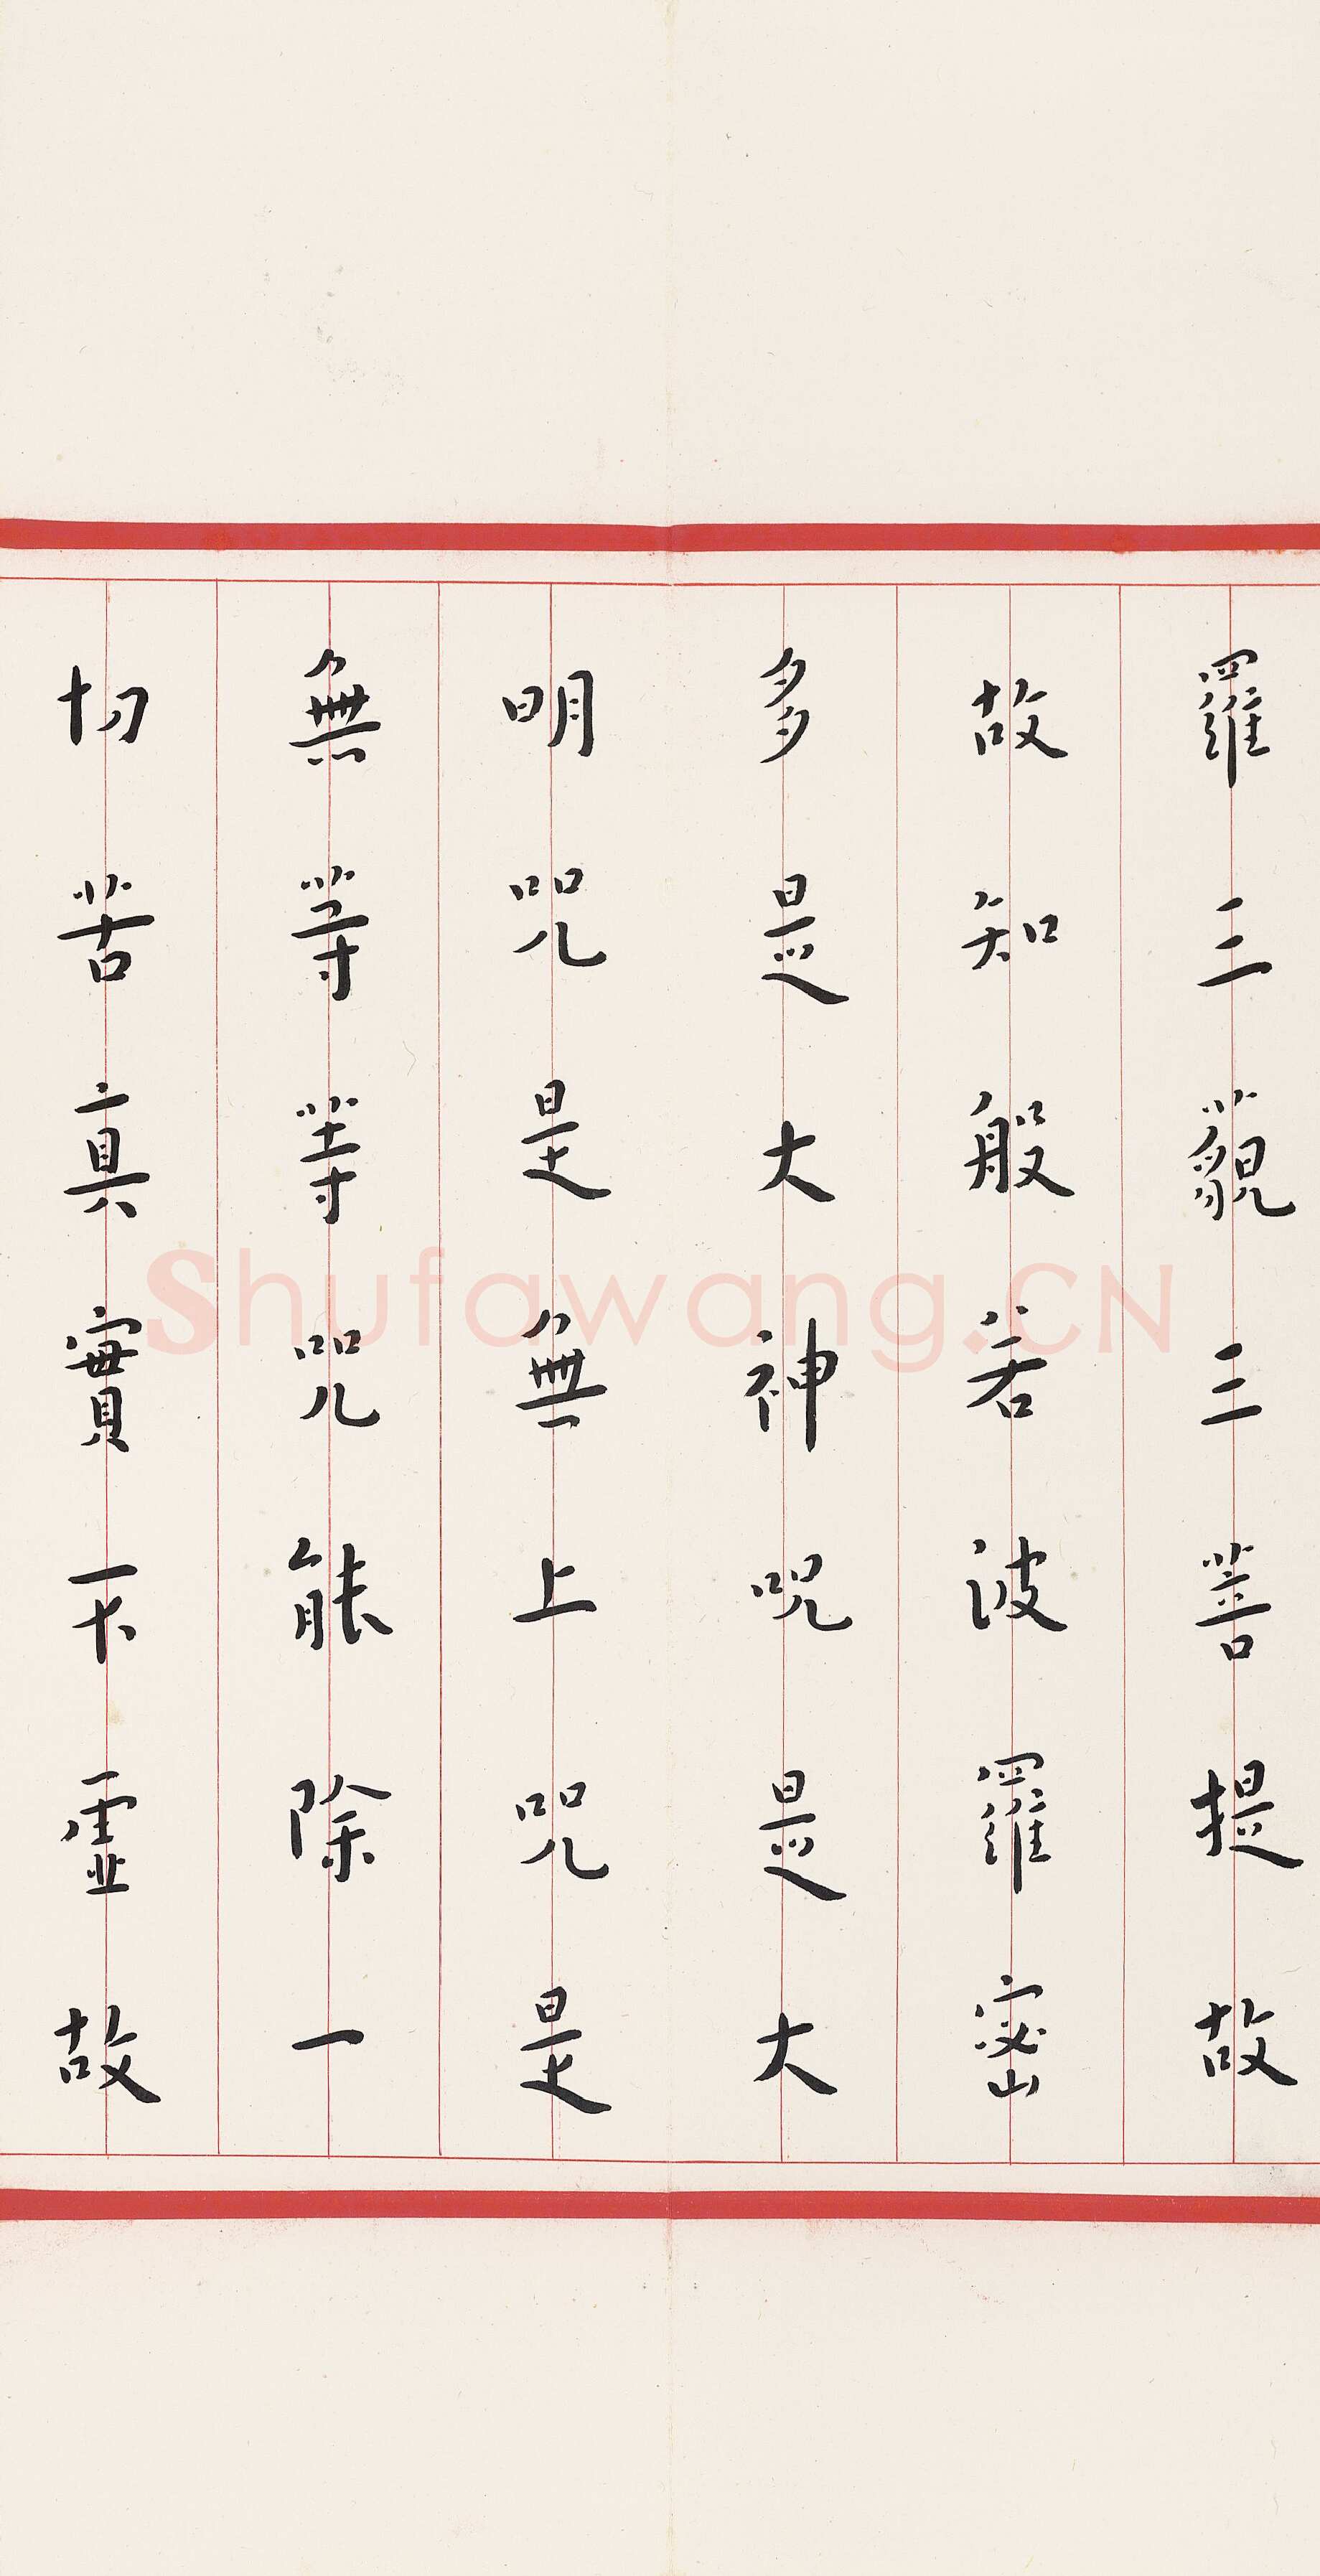 羅三藐三菩提故
故知般若波羅密
多是大神咒是大
明咒是無上咒是
無等等咒能除一
切苦真實不虛故
Shufawang.CN